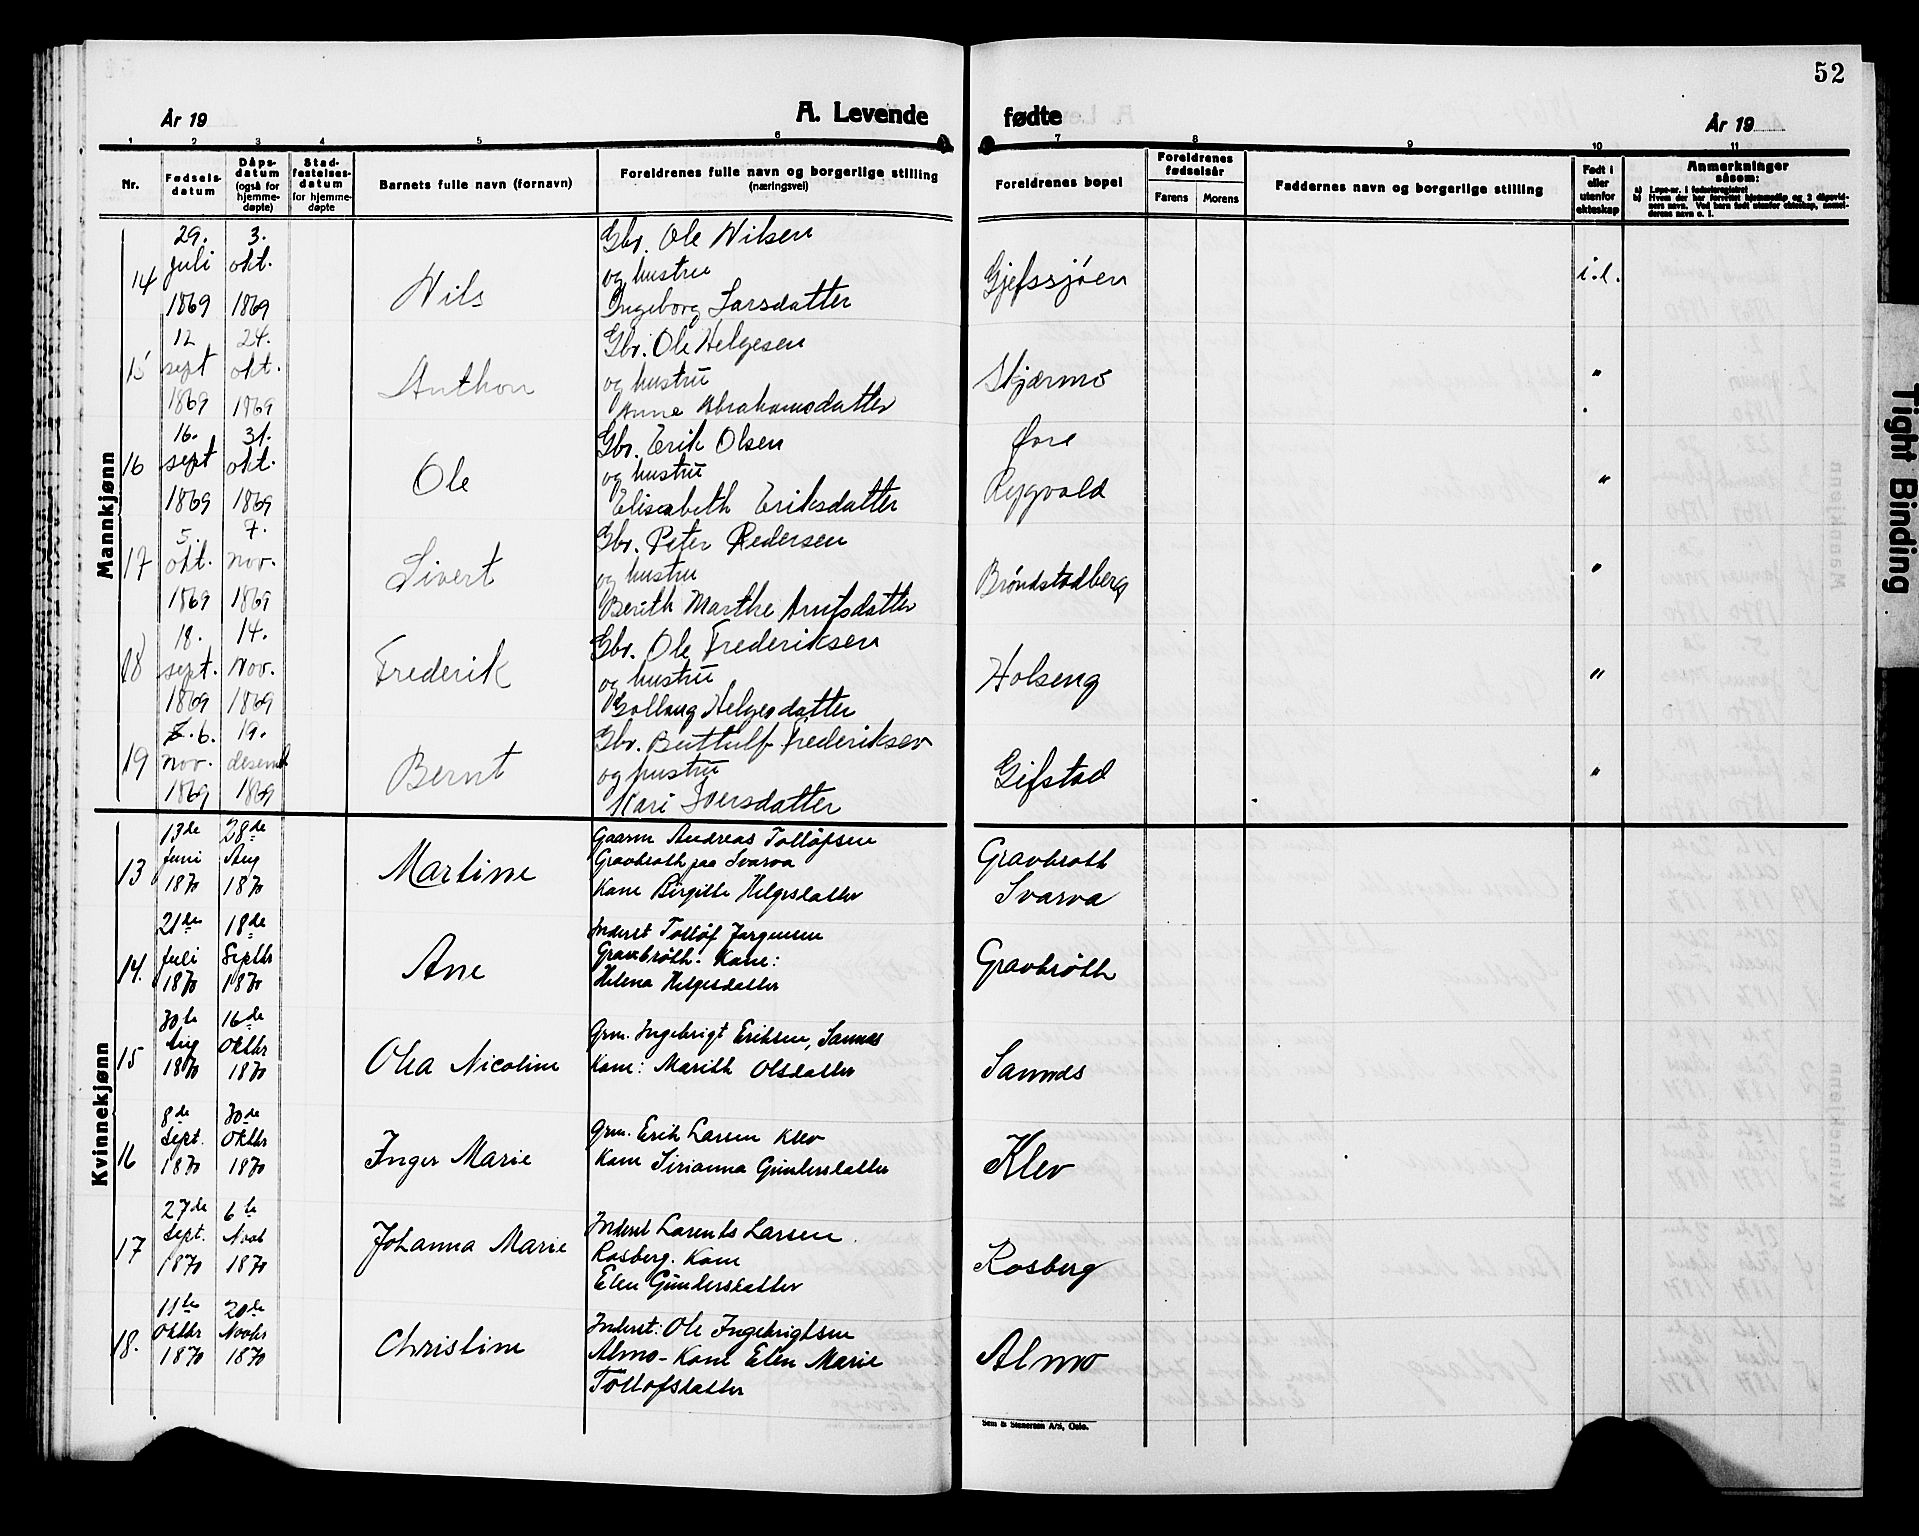 52
År 19
A. Levende
fødte
År 19
1 2 3 4 5 6 7 8 9 10 11
Nr.
Fødsels-
datum
Dåps-
datum
(også for
hjemme-
døpte)
Stad-
festelses-
datum
for hjemme-
døpte
Barnets fulle navn (fornavn)
Foreldrenes fulle navn og borgerlige stilling
(næringsvei)
Foreldrenes bopel
Foreldrenes
fødselsår
Farens
Morens
Faddernes navn og borgerlige stilling
Født i
eller
utenfor
ekteskap
Anmerkninger
såsom:
Mannkjønn
14
29.
juli
1869
3.
okt.
1869
Nils
Gbr. Ole Nilsen
og hustru
Ingeborg Larsdatter
Gjefssjøen
i.e.
15
12
sept
1869
24.
okt.
1869
Anthon
Gbr. Ole Helgesen
og hustru
Anne Abrahamsdatter
Skjærmo
"
16
16.
sept
1869
31.
okt.
1869
Ole
Gbr. Erik Olsen
og hustru
Elisabeth Eriksdatter
Øvre
Rygvold
"
17
5.
okt.
1869
7.
nov.
1869
Sivert
Gbr. Peter Pedersen
og hustru
Berith Marthe Arntsdatter
Brøndstadberg
"
18
18.
sept.
1869
14.
nov.
1869
Frederik
Gbr. Ole Frederiksen
og hustru
Golloug Helgesdatter
Holseng
"
19
6.
nov.
1869
19.
desemb
1869
Bernt
Gbr. Buttulf Frederiksen
og hustru
Kari Iversdatter
Gifstad
"
Kvinnekjønn
13
13de
Juni
1870
28de
Aug
1870
Martine
Gaarm Andreas Tolløfsen
Gravbrøth paa Svarva
Kone Birgitte Helgesdatter
Gravbrøth
Svarva
14.
21de
Juli
1870
18de
Septbr
1870
Ane
Inderst Tolløf Jørgensen
Gravbrøth. Kone:
Helena Helgesdatter
Gravbrøth
15
30te
Aug
1870
16de
Oktbr
1870
Olea Nicoline
Grm. Ingebrigt Eriksen, Sannes
Kone: Marith Olsdatter
Sannes
16
8de
Sept.
1870
30de
Oktbr
1870
Inger Marie
Grm. Erik Larsen Klev
Kone Sirianna Gundersdatter
Klev
17
27de
Sept.
1870
6te
Novb
1870
Johanna Marie
Inderst Lorents Larsen
Rosberg. Kone
Elen Gundersdatter
Rosberg
18.
11te
Oktbr
1870
20de
Novbr
1870
Christine
Inderst: Ole Ingebrigtsen
Almo - Kone Elen Marie
Tolløfsdatter
Almo
Sem & Stenersen A/S, Oslo.
Tight Binding